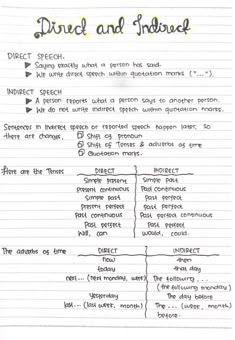 Direct and Indirect
DIRECT SPEECH.
➤ Saying exactly what a person has said.
➤ We write direct speech within quotation marks ("...").
INDIRECT SPEECH
➤ A person reports what a person says to another person.
➤ We do not write indirect speech within quotation marks.
Sentences in indirect speech or reported speech happen later, so
there are changes, ① Shift of pronoun
② Shift of Tenses & adverbs of time
③ Quotation marks.
Here are the Tenses DIRECT INDIRECT
Simple present Simple past
Present continuous Past continuous
Simple past Past perfect
Present perfect Past perfect
Past continuous Past perfect continuous
Past perfect Past perfect
Will, can would, could.
The adverbs of time DIRECT INDIRECT
now then
today that day
next... (next monday, week) The following...
(the following monday)
Yesterday The day before
last... (last week, month) The ... (week, month)
before.